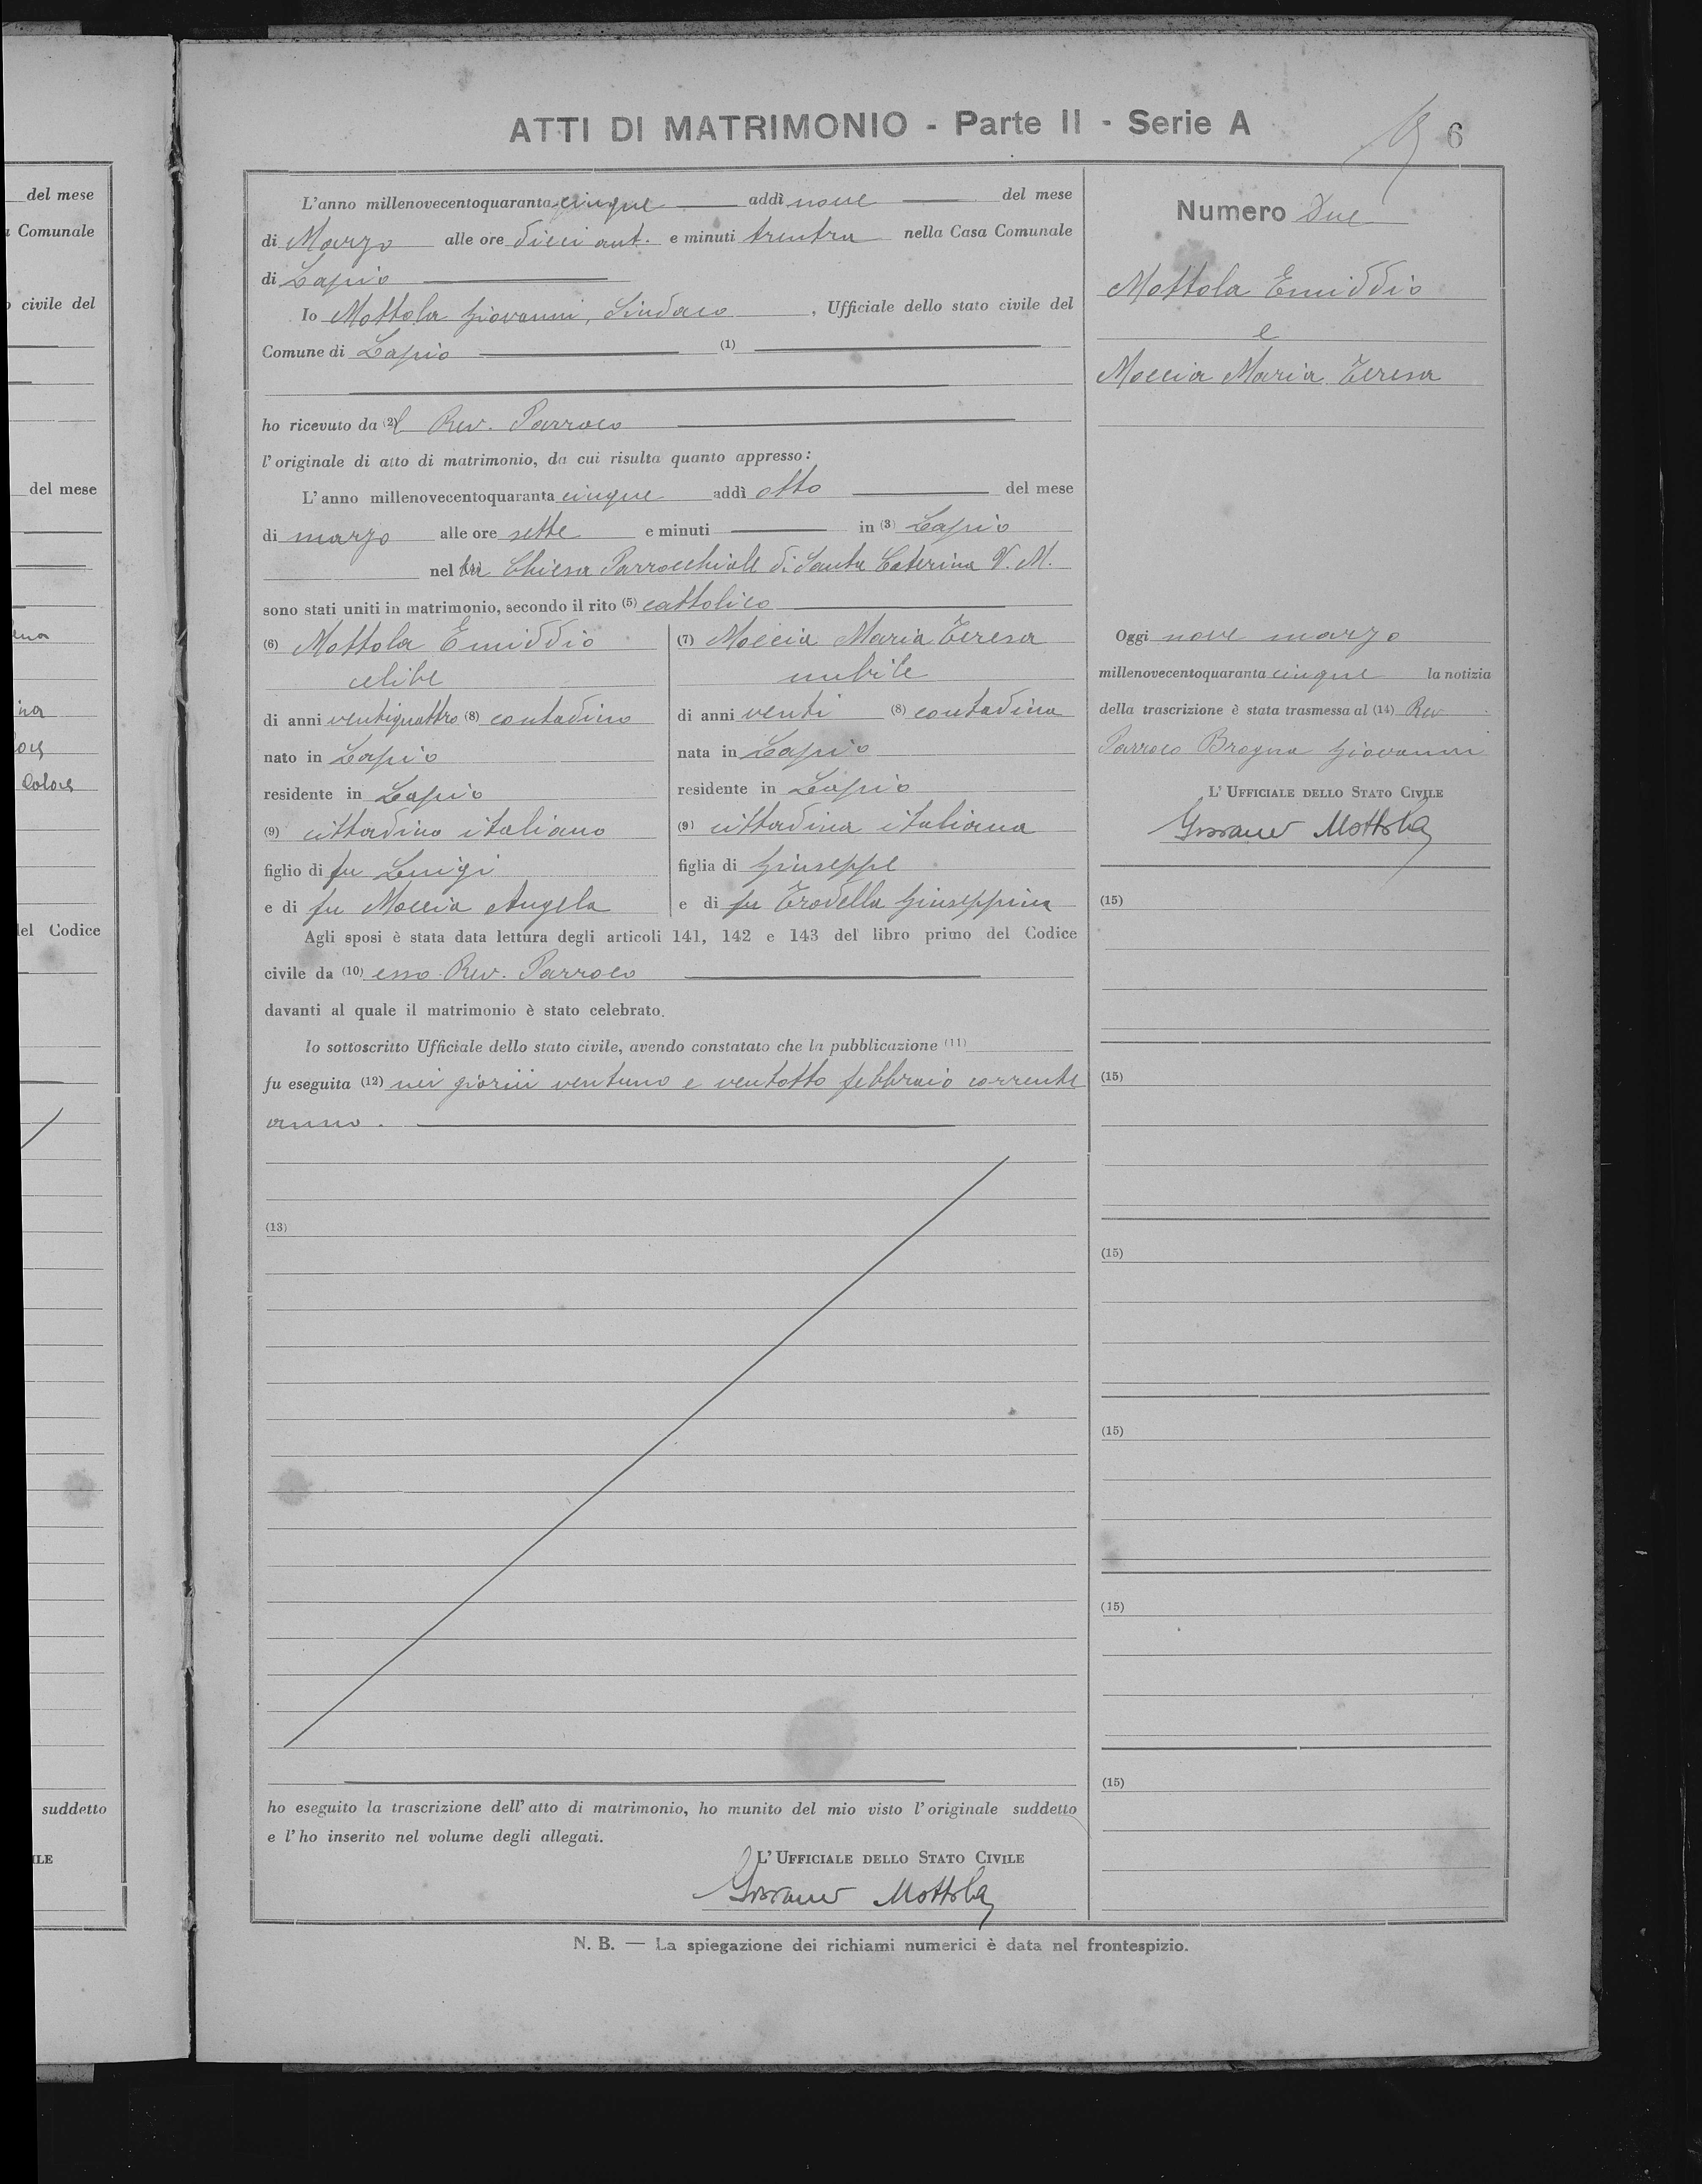 del mese
Comunale
civile del
del mese
del Codice
suddetto
ATTI DI MATRIMONIO - Parte II - Serie A
6
L'anno millenovecentoquaranta cinque addì nove del mese
di Marzo alle ore dieci ant. e minuti nella Casa Comunale
di Lapio
Io Mottola Giovanni, Sindaco, Ufficiale dello stato civile del
Comune di Lapio (1)
ho ricevuto da (2)l Rev. Parroco
l'originale di atto di matrimonio, da cui risulta quanto appresso:
L'anno millenovecentoquaranta cinque addì otto del mese
di marzo alle ore sette e minuti in (3) Lapio
nella Chiesa Parrocchiale di Santa Caterina V. M.
sono stati uniti in matrimonio, secondo il rito (5) cattolico
(6) Mottola Emiddio
celibe
di anni ventiquattro (8) contadino
nato in Lapio
residente in Lapio
(9) cittadino italiano
figlio di fu Luigi
e di fu Moccia Angela
(7) Moccia Maria Teresa
nubile
di anni venti (8) contadina
nata in Lapio
residente in Lapio
(9) cittadina italiana
figlia di Giuseppe
e di fu Trodella Giuseppina
Agli sposi è stata data lettura degli articoli 141, 142 e 143 del libro primo del Codice
civile da (10) esso Rev. Parroco
davanti al quale il matrimonio è stato celebrato.
Io sottoscritto Ufficiale dello stato civile, avendo constatato che la pubblicazione (11)
fu eseguita (12) nei giorni ventuno e ventotto febbraio corrente
anno.
(13)
ho eseguito la trascrizione dell'atto di matrimonio, ho munito del mio visto l'originale suddetto
e l'ho inserito nel volume degli allegati.
L'UFFICIALE DELLO STATO CIVILE
Giovanni Mottola
Numero Due
Mottola Emiddio
e
Moccia Maria Teresa
Oggi nove marzo
millenovecentoquaranta cinque la notizia
della trascrizione è stata trasmessa al (14) Rev.
Parroco Brogna Giovanni
L'UFFICIALE DELLO STATO CIVILE
Giovanni Mottola
(15)
(15)
(15)
(15)
(15)
(15)
N. B. — La spiegazione dei richiami numerici è data nel frontespizio.